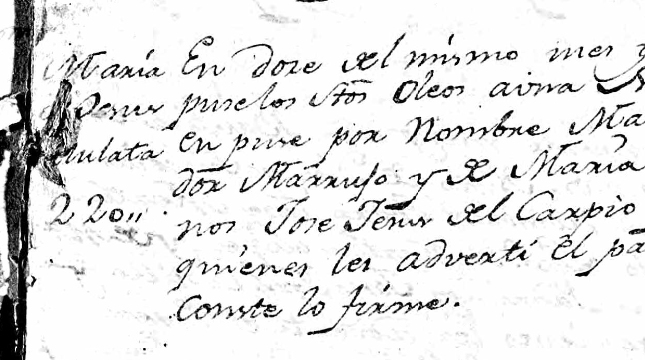 María En doze del mismo mes y
puse los Stos Oleos a una
Mulata en puse por Nombre Ma
dor Marrufo y de María
220,, nos Jose Jesus del Carpio
quienes les advertí el pa
Conste lo firme.